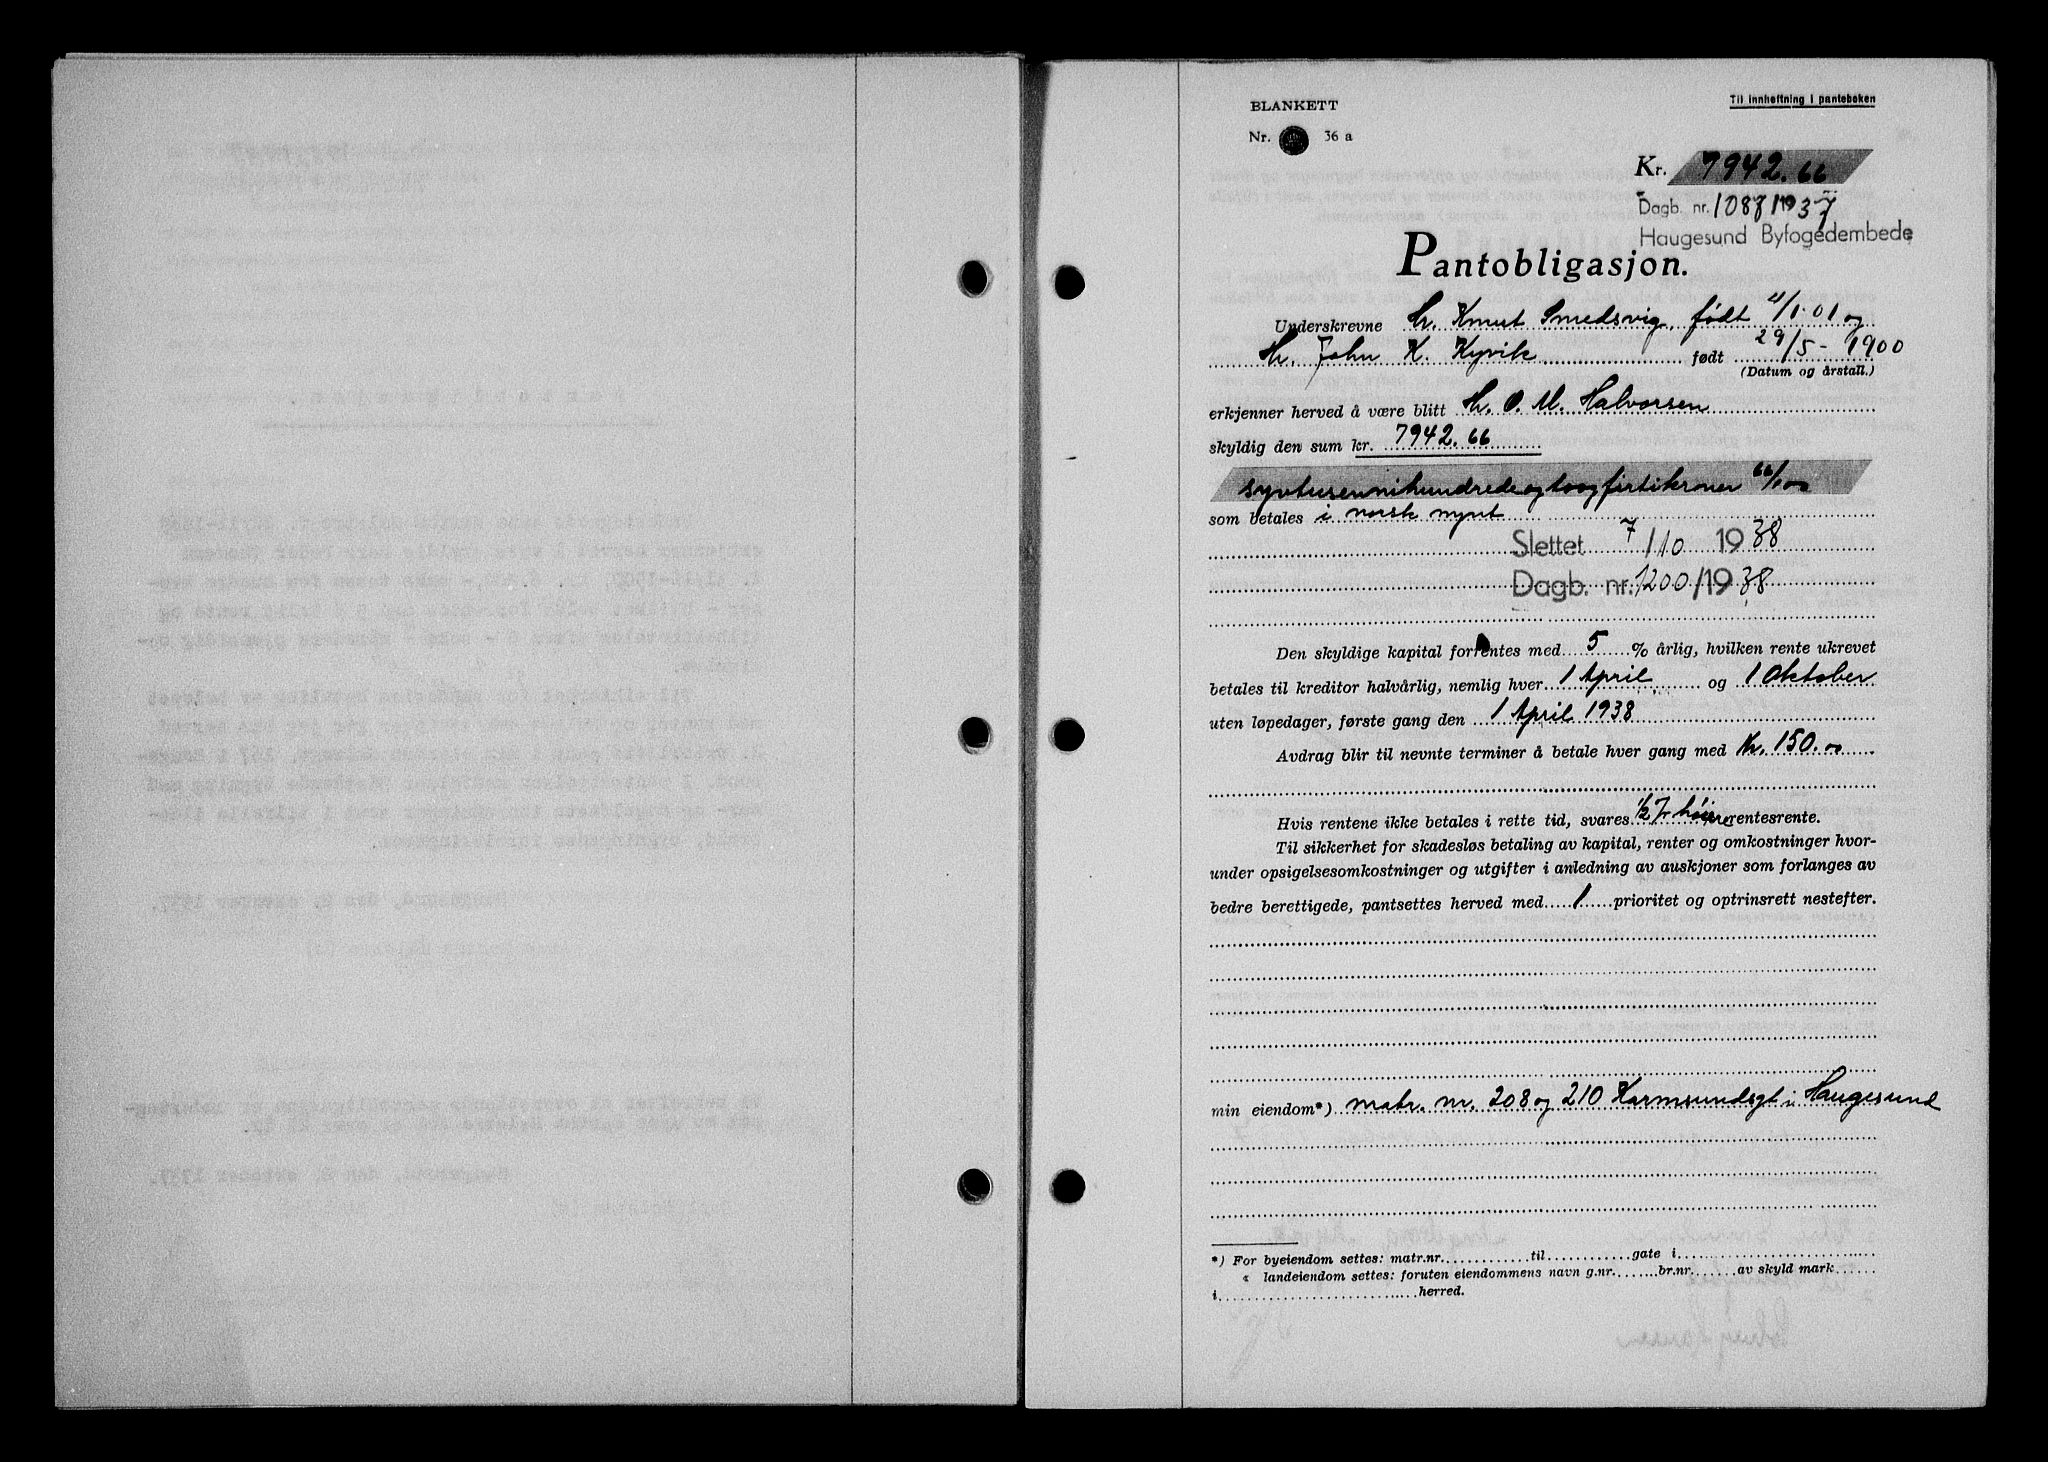 BLANKETT
Nr. 36 a
Til innheftning i panteboken
Kr. 7942.66
Dagb. nr. 1088/1937
Haugesund Byfogedembede
Pantobligasjon.
Underskrevne Hr. Knut Smedsvig, født 4/1.01 og
Hr. John K. Kyvik født 29/5-1900
(Datum og årstall.)
erkjenner herved å være blitt Hr. O. M. Halvorsen
skyldig den sum kr. 7942.66
syvtusennihundredeogtoogfirtikroner 66/100
som betales i norsk mynt
Slettet 7/10 1938
Dagb. nr. 1200/1938
Den skyldige kapital forrentes med 5 % årlig, hvilken rente ukrevet
betales til kreditor halvårlig, nemlig hver 1 April og 1 Oktober
uten løpedager, første gang den 1 April 1938
Avdrag blir til nevnte terminer å betale hver gang med Kr. 150.00
Hvis rentene ikke betales i rette tid, svares 1/2 % høiere rentesrente.
Til sikkerhet for skadesløs betaling av kapital, renter og omkostninger hvor-
under opsigelsesomkostninger og utgifter i anledning av auskjoner som forlanges av
bedre berettigede, pantsettes herved med 1 prioritet og optrinsrett nestefter.
min eiendom*) matr. nr. 208 og 210 Karmsundsgt i Haugesund
*) For byeiendom settes: matr.nr. til gate i
« landeiendom settes: foruten eiendommens navn g.nr. br.nr. av skyld mark
i herred.